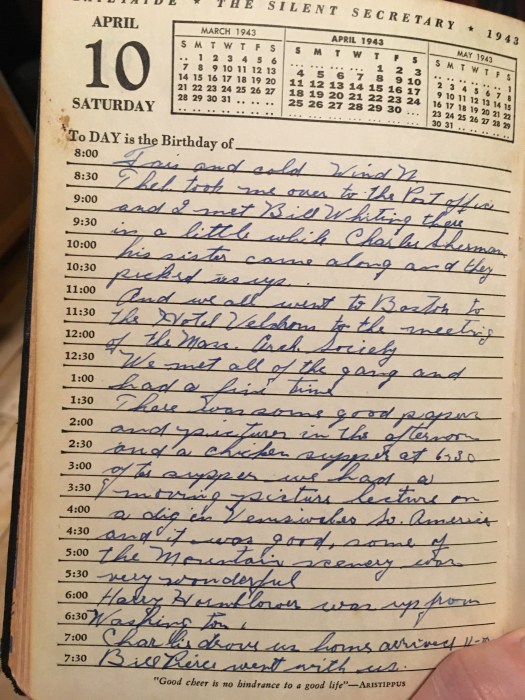 THE SILENT SECRETARY ★ 1943
APRIL
10
SATURDAY
MARCH 1943
S M T W T F S
.. 1 2 3 4 5 6
7 8 9 10 11 12 13
14 15 16 17 18 19 20
21 22 23 24 25 26 27
28 29 30 31 .. .. ..
APRIL 1943
S M T W T F S
1 2 3
4 5 6 7 8 9 10
11 12 13 14 15 16 17
18 19 20 21 22 23 24
25 26 27 28 29 30 ..
MAY 1943
S M T W T F S
.. .. .. .. .. .. 1
2 3 4 5 6 7 8
9 10 11 12 13 14 15
16 17 18 19 20 21 22
23 24 25 26 27 28 29
30 31 .. .. .. .. ..
To DAY is the Birthday of
8:00 Fair and cold Wind N
8:30 Thel took me over to the Post office
9:00 and I met Bill Whiting there
9:30 in a little while Charles Sherman
10:00 his sister came along and they
10:30 picked us up.
11:00 And we all went to Boston to
11:30 the Hotel to the meeting
12:00 of the Mass. Arch. Society
12:30 We met all of the gang and
1:00 had a fine time
1:30 There was some good papers
2:00 and pictures in the afternoon
2:30 and a chicken supper at 6:30
3:00 after supper we had a
3:30 moving picture lecture on
4:00 a dig in So. America
4:30 and it was good, some of
5:00 the Mountain scenery was
5:30 very wonderful
6:00 Harry Hornblower was up from
6:30 Washington.
7:00 Charlie drove us home arrived
7:30 Bill Pierce went with us.
"Good cheer is no hindrance to a good life"—ARISTIPPUS